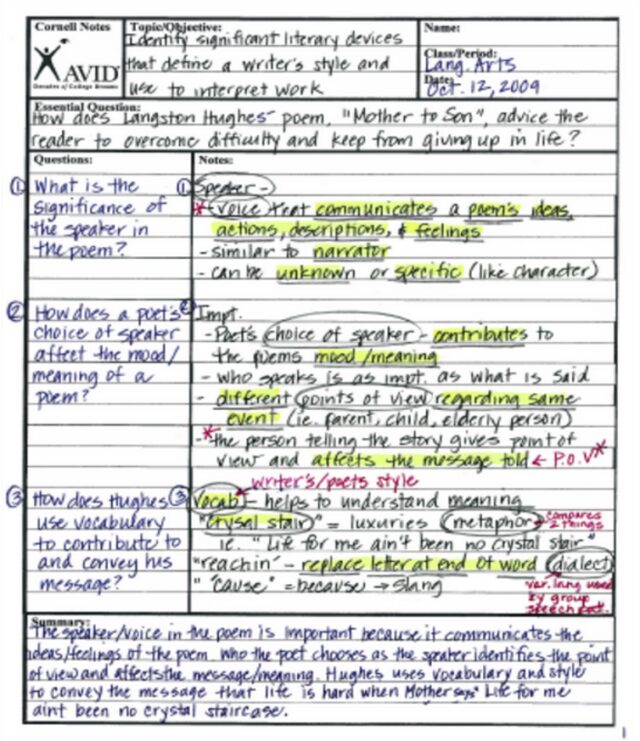 Cornell Notes
AVID
Decades of College Dreams
Topic/Objective:
Identify significant literary devices
that define a writer's style and
use to interpret work
Name:
Class/Period:
Lang. Arts
Date:
Oct. 12, 2009
Essential Question:
How does Langston Hughes' poem, "Mother to Son", advice the
reader to overcome difficulty and keep from giving up in life?
Questions:
① What is the
significance of
the speaker in
the poem?
② How does a poet's
choice of speaker
affect the mood/
meaning of a
poem?
③ How does Hughes
use vocabulary
to contribute to
and convey his
message?
Notes:
① Speaker -)
* voice that communicates a poem's ideas,
actions, descriptions, & feelings
- similar to narrator
- can be unknown or specific (like character)
② Impt.
- Poet's choice of speaker - contributes to
the poems mood/meaning
- who speaks is as impt. as what is said
- different points of view regarding same
event (ie. parent, child, elderly person)
-* the person telling the story gives point of
view and affects the message told ← P.O.V*
writer's/poets style
③ Vocab - helps to understand meaning
"Crysal stair" = luxuries (metaphor) → compares
2 things
ie. "Life for me ain't been no crystal stair"
"reachin" - replace letter at end of word (dialect)
" 'cause" = because → slang
var. lang used
by group
speech pat.
Summary:
The speaker/voice in the poem is important because it communicates the
ideas/feelings of the poem. Who the poet chooses as the speaker identifies the point
of view and affects the message/meaning. Hughes uses vocabulary and style
to convey the message that life is hard when Mother says "Life for me
aint been no crystal staircase.
1